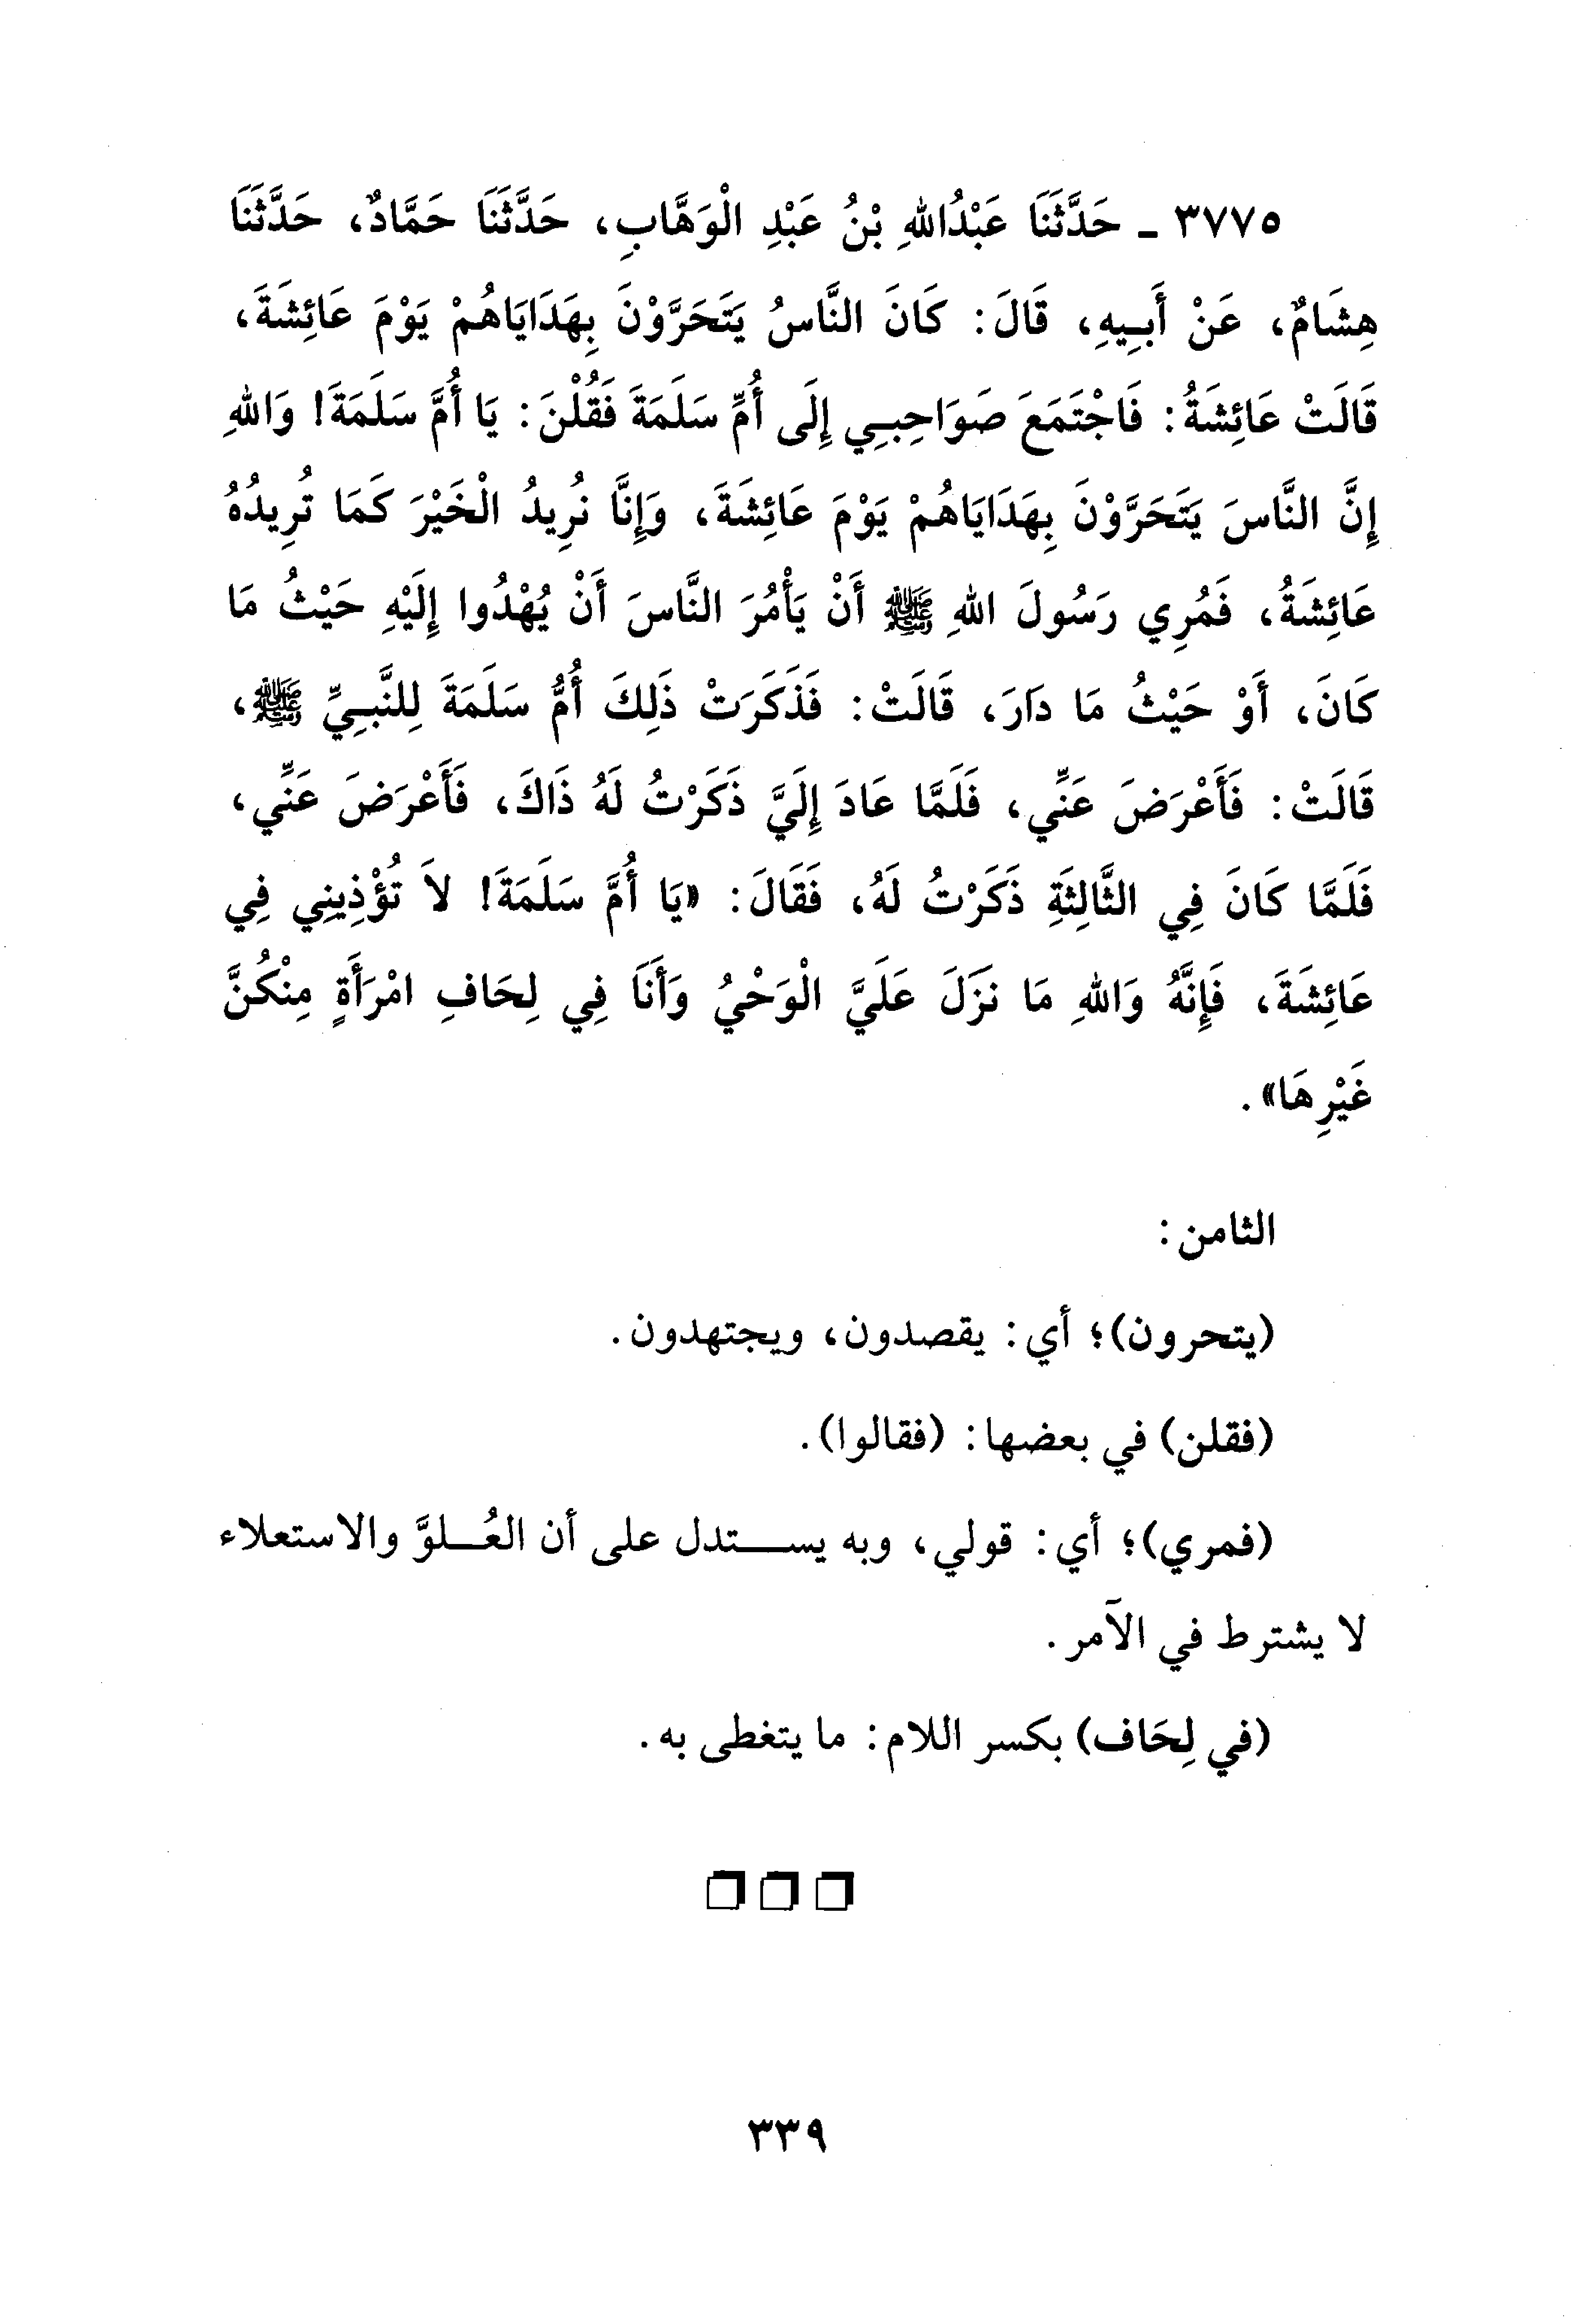 ٣٧٧٥ ـ حَدَّثَنَا عَبْدُاللهِ بْنُ عَبْدِ الْوَهَّابِ، حَدَّثَنَا حَمَّادٌ، حَدَّثَنَا
هِشَامٌ، عَنْ أَبِيهِ، قَالَ: كَانَ النَّاسُ يَتَحَرَّوْنَ بِهَدَايَاهُمْ يَوْمَ عَائِشَةَ،
قَالَتْ عَائِشَةُ: فَاجْتَمَعَ صَوَاحِبِي إِلَى أُمِّ سَلَمَةَ فَقُلْنَ: يَا أُمَّ سَلَمَةَ! وَاللهِ
إِنَّ النَّاسَ يَتَحَرَّوْنَ بِهَدَايَاهُمْ يَوْمَ عَائِشَةَ، وَإِنَّا نُرِيدُ الْخَيْرَ كَمَا تُرِيدُهُ
عَائِشَةُ، فَمُرِي رَسُولَ اللهِ ﷺ أَنْ يَأْمُرَ النَّاسَ أَنْ يُهْدُوا إِلَيْهِ حَيْثُ مَا
كَانَ، أَوْ حَيْثُ مَا دَارَ، قَالَتْ: فَذَكَرَتْ ذَلِكَ أُمُّ سَلَمَةَ لِلنَّبِيِّ ﷺ،
قَالَتْ: فَأَعْرَضَ عَنِّي، فَلَمَّا عَادَ إِلَيَّ ذَكَرْتُ لَهُ ذَاكَ، فَأَعْرَضَ عَنِّي،
فَلَمَّا كَانَ فِي الثَّالِثَةِ ذَكَرْتُ لَهُ، فَقَالَ: «يَا أُمَّ سَلَمَةَ! لاَ تُؤْذِينِي فِي
عَائِشَةَ، فَإِنَّهُ وَاللهِ مَا نَزَلَ عَلَيَّ الْوَحْيُ وَأَنَا فِي لِحَافِ امْرَأَةٍ مِنْكُنَّ
غَيْرِهَا».
الثامن:
(يتحرون)؛ أي: يقصدون، ويجتهدون.
(فقلن) في بعضها: (فقالوا).
(فمري)؛ أي: قولي، وبه يستدل على أن العُلوَّ والاستعلاء
لا يشترط في الآمر.
(في لِحَاف) بكسر اللام: ما يتغطى به.
٣٣٩